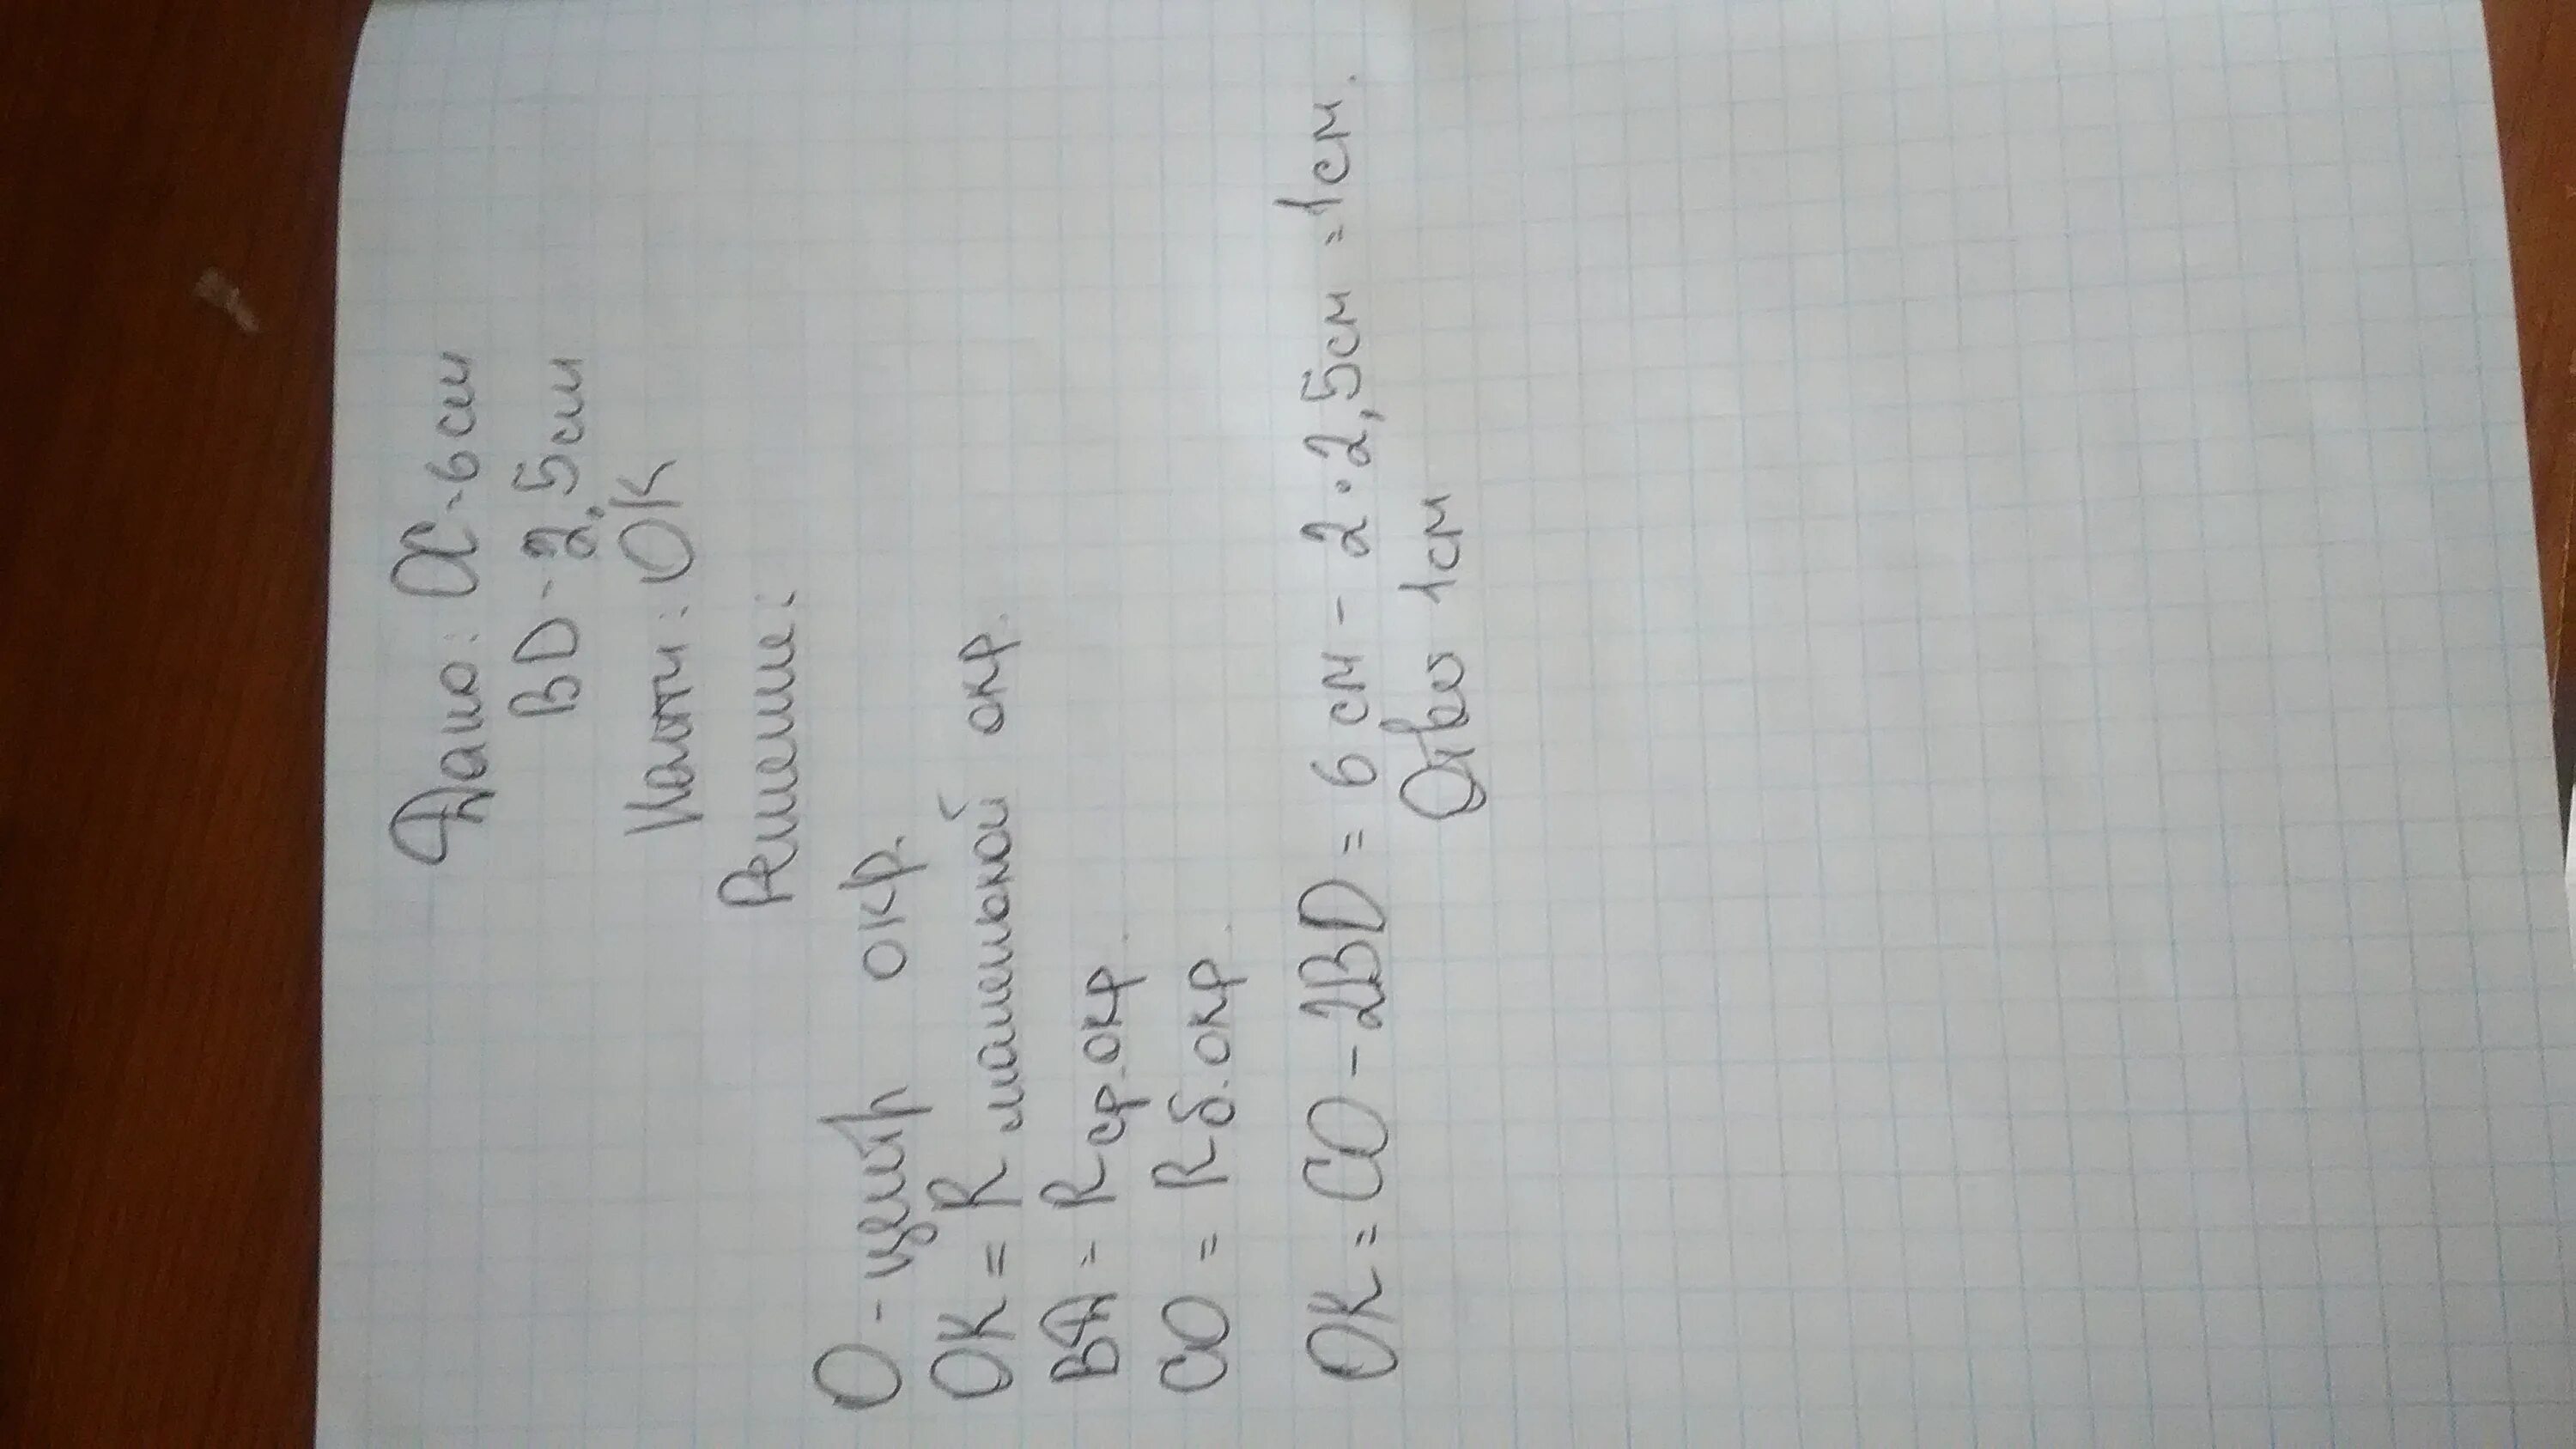 Дано: ОС - 6 см
BD - 2,5 см
Найти: ОК
Решение:
О - центр окр.
ОК = R маленькой окр.
ВА = R ср. окр.
СО = R б. окр.
ОК = СО - 2BD = 6 см - 2 · 2,5 см = 1 см.
Ответ 1 см